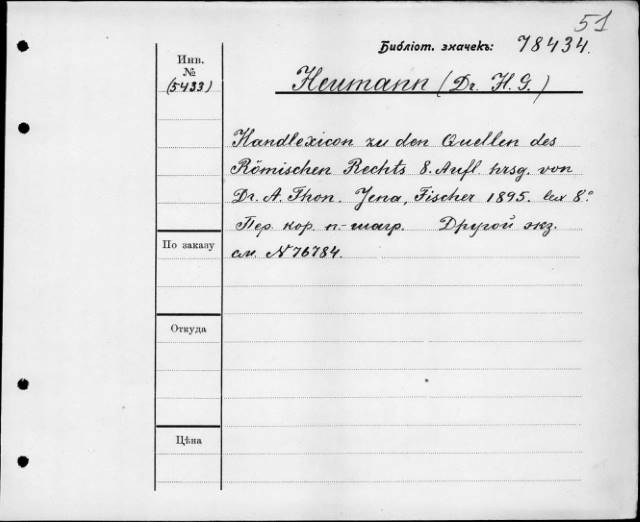 51
Библіот. значекъ: 78434.
Инв.
№
(5433)
Heumann (Dr. H. G.)
Handlexicon zu den Quellen des
Römischen Rechts 8. Aufl. hrsg. von
Dr. A. Thon. Jena, Fischer 1895. lex 8°
Пер. кор. п.-шагр. Другой экз.
см. N 76784.
По заказу
Откуда
Цѣна